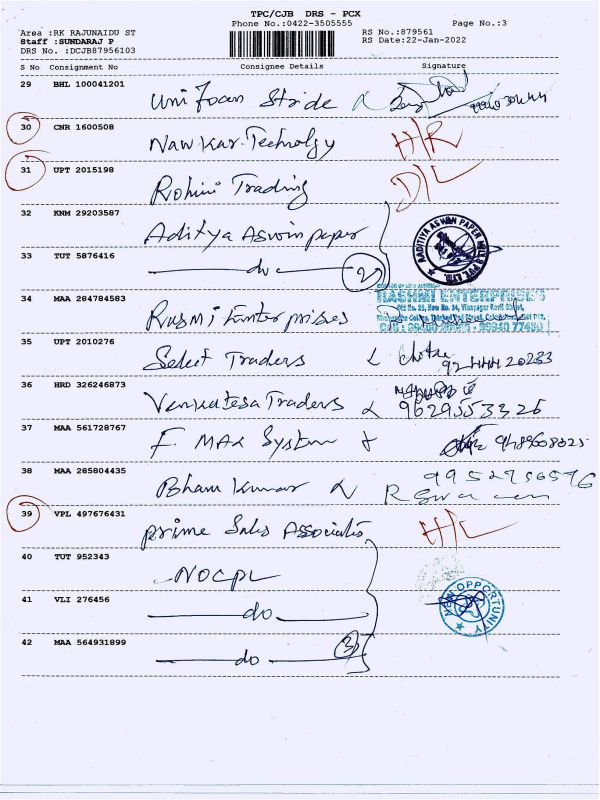 TPC/CJB DRS - PCX
Phone No.:0422-3505555
Page No.:3
Area :RK RAJUNAIDU ST
Staff :SUNDARAJ P
DRS No. :DCJB87956103
RS No.:879561
RS Date:22-Jan-2022
S No Consignment No Consignee Details Signature
29 BHL 100041201 Uni Foam Stride
30 CNR 1600508 Nawkar Technolgy H/R
31 UPT 2015198 Rohini Trading D/L
32 KNM 29203587 Aditya Aswin paper
AADITIYA ASWIN PAPER MILLS PVT. LTD.
33 TUT 5876416 do 2
34 MAA 284784583 Rasmi Enterprises
RASHMI ENTERPRISES
35 UPT 2010276 Select Traders
36 HRD 326246873 Venkatesa Traders 9629553326
37 MAA 561728767 F MAX System
38 MAA 285804435 Bham Kumar
39 VPL 497676431 prime Sales Associates H/L
40 TUT 952343 NOCPL
41 VLI 276456 do
NEW OPPORTUNITY
42 MAA 564931899 do 3